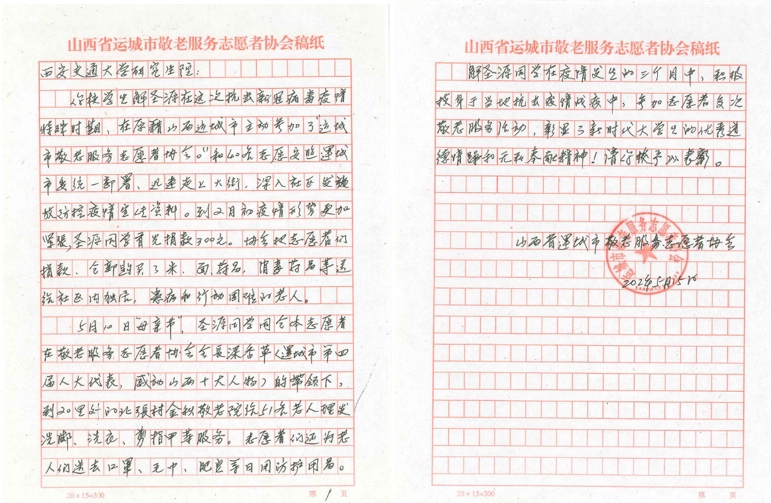 山西省运城市敬老服务志愿者协会稿纸
西安交通大学研究生院：
你校学生解圣源在这次抗击新冠病毒疫情
特殊时期，在原籍山西运城市主动参加了"运城
市敬老服务志愿者协会。"和40名志愿者按运城
市委统一部署、迅速走上大街，深入社区发放
放防控疫情宣传资料。到2月初疫情形势更加
紧张圣源同学首先捐款300元。协会把志愿者们
捐款、全部购买了米、面、药品，消毒药品等送
给社区内独居，患病和行动困难的老人。
5月10日"母亲节"，圣源同学同全体志愿者
在敬老服务志愿者协会会长梁香草（运城市第四
届人大代表，感动山西十大人物）的带领下，
到20里外的北张村金秋敬老院给51名老人理发
洗脚、洗衣、剪指甲等服务。志愿者们还为老
人们送去口罩、毛巾、肥皂等日用防护用品。
20×15=300 第 1 页
山西省运城市敬老服务志愿者协会稿纸
解圣源同学在疫情发生的三个月中，积极
投身于当地抗击疫情战役中，参加志愿者多次
敬老服务活动，彰显了新时代大学生的优秀道
德情操和无私奉献精神！请你校予以表彰。
山西省运城市敬老服务志愿者协会
5月15日
20×15=300 第 页